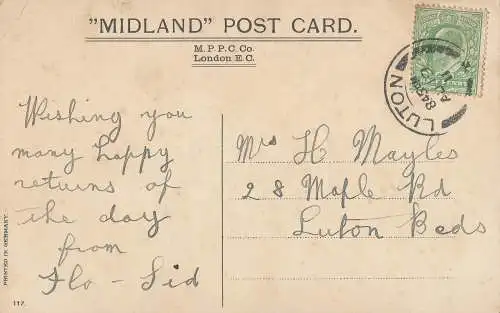 "MIDLAND" POST CARD.
M.P.P.C. Co.
London E.C.
LUTON
8 45 PM
Wishing you
many happy
returns of
the day
from
Flo - Sid
Mrs H Mayles
28 Maple Rd
Luton Beds
PRINTED IN GERMANY
117.